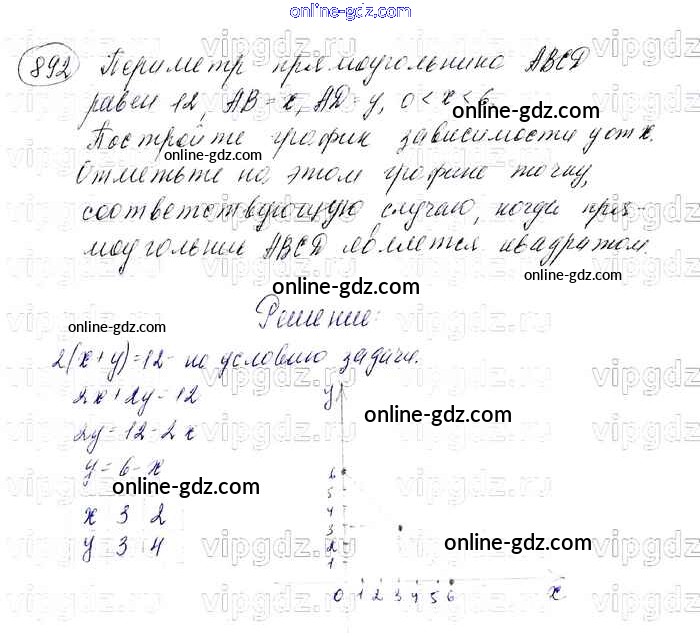 online-gdz.com
892 Периметр прямоугольника ABCD
равен 12, AB = x, AD = y, 0 < x < 6.
online-gdz.com
Постройте график зависимости y от x.
online-gdz.com
Отметьте на этом графике точку,
соответствующую случаю, когда пря-
моугольник ABCD является квадратом.
online-gdz.com
online-gdz.com
Решение:
online-gdz.com
2(x+y)=12 - по условию задачи.
2x+2y=12
online-gdz.com
2y=12-2x
y=6-x
online-gdz.com
x 3 2
y 3 4
online-gdz.com
y
6
5
4
3
2
1
0 1 2 3 4 5 6 x
vipgdz.ru